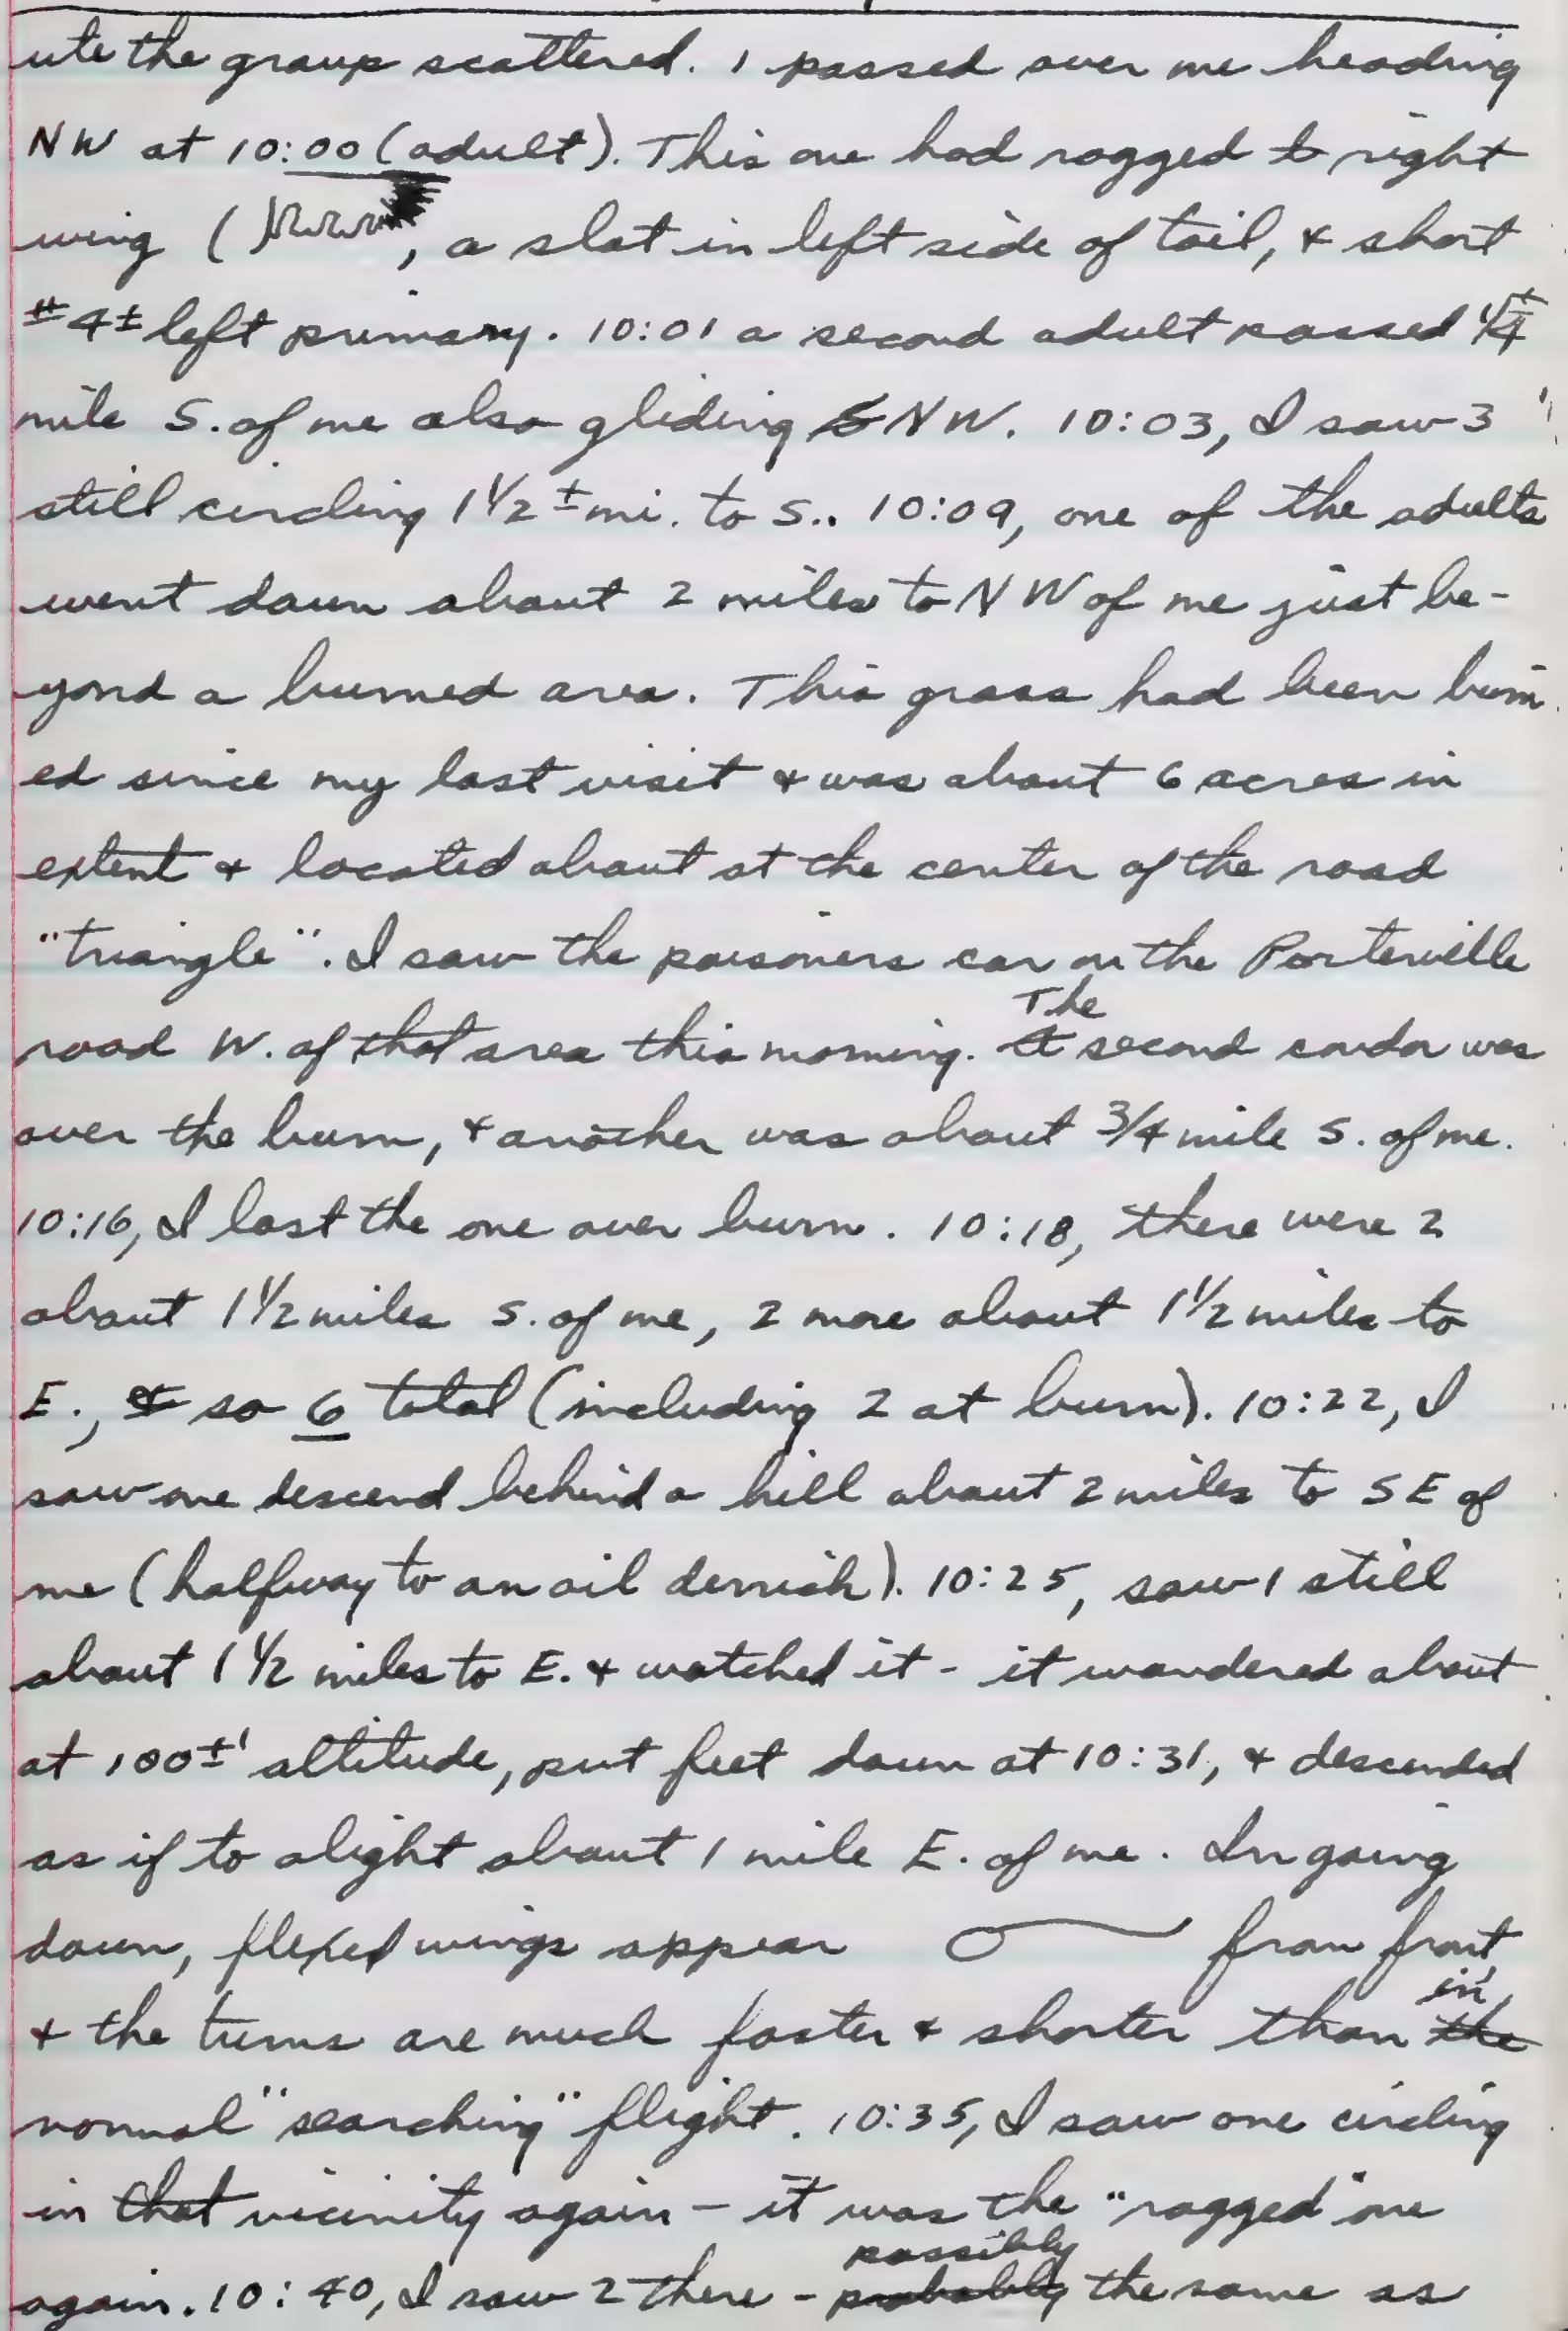 ute the group scattered. 1 passed over me heading
NW at 10:00 (adult). This one had ragged right
wing (, a slot in left side of tail, & short
#4± left primary. 10:01 a second adult passed
mile S. of me also gliding NW. 10:03, I saw 3
still circling 1½± mi. to S.. 10:09, one of the adults
went down about 2 miles to NW of me just be-
yond a burned area. This grass had been burn
ed since my last visit & was about 6 acres in
extent & located about at the center of the road
"triangle". I saw the poisoners car on the Porterville
road W. of that area this morning. The second condor was
over the burn, & another was about ¾ mile S. of me.
10:16, I lost the one over burn. 10:18, there were 2
about 1½ miles S. of me, 2 more about 1½ miles to
E., so 6 total (including 2 at burn). 10:22, I
saw one descend behind a hill about 2 miles to SE of
me (halfway to an oil derrick). 10:25, saw 1 still
about 1½ miles to E. & watched it - it wandered about
at 100±' altitude, put feet down at 10:31, & descended
as if to alight about 1 mile E. of me. In going
down, flexed wings appear from front
& the turns are much faster & shorter than in
normal "searching" flight. 10:35, I saw one circling
in that vicinity again - it was the "ragged" one
again. 10:40, I saw 2 there - possibly the same as